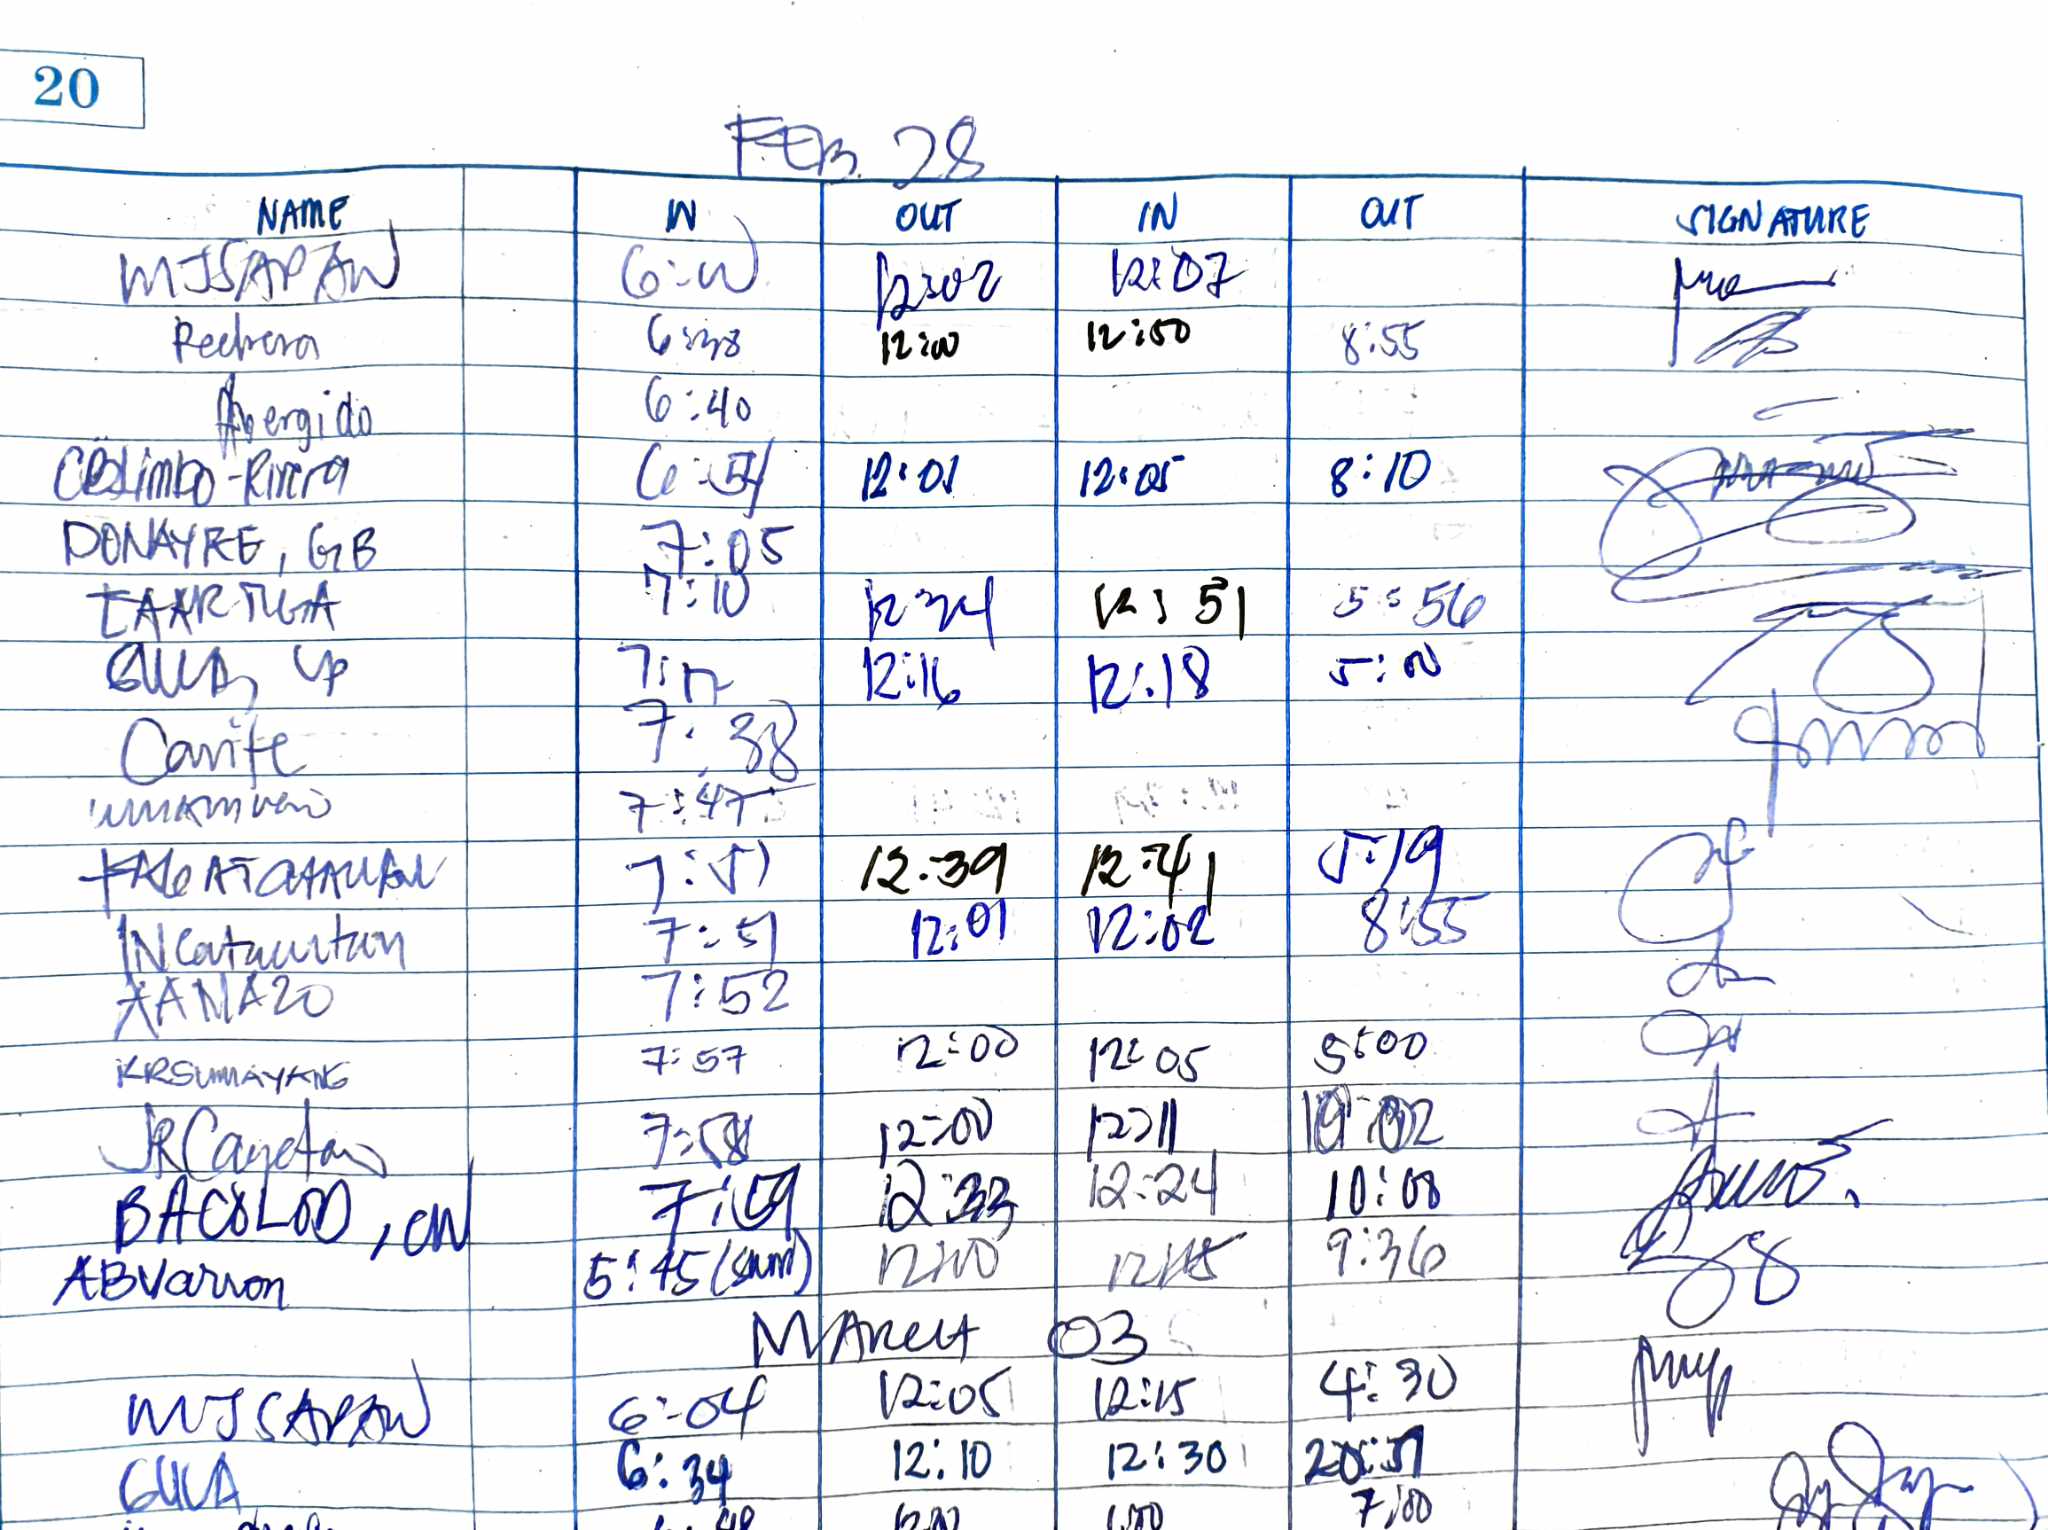 20
FEB. 28
NAME IN OUT IN OUT SIGNATURE
MJSAPAW 6:00 12:02 12:07
Pechera 6:38 12:00 12:50 8:55
Abergido 6:40
CBLimbo-Rivera 6:54 12:01 12:05 8:10
DONAYRE, GB 7:05
7:10 12:34 12:51 5:56
7:17 12:16 12:18 5:00
Cavite 7:38
7:47
7:51 12:39 12:41 5:19
INCatacutan 7:51 12:01 12:02 8:55
7:52
KRSUMAYANG 7:57 12:00 12:05 5:00
JRCayetano 7:58 12:00 12:11
BACOLOD, CW 12:33 12:24 10:08
ABVarron 5:45 12:10 12:15 9:36
MARCH 03
MJSAPAW 6:04 12:05 12:15 4:30
GULA 6:34 12:10 12:30
7:00